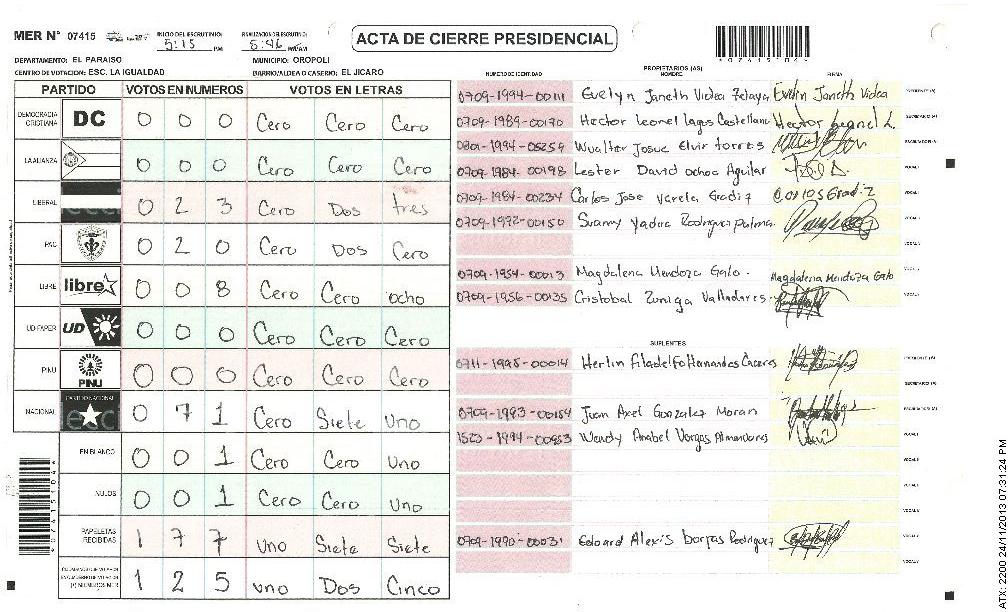 MER N° 07415
INICIO DEL ESCRUTINIO: 5:15 PM
FINALIZACION DEL ESCRUTINIO: 5:46 PM/AM
ACTA DE CIERRE PRESIDENCIAL
DEPARTAMENTO: EL PARAISO MUNICIPIO: OROPOLI
CENTRO DE VOTACION: ESC. LA IGUALDAD BARRIO/ALDEA O CASERIO: EL JICARO
PARTIDO VOTOS EN NUMEROS VOTOS EN LETRAS
DEMOCRACIA CRISTIANA DC 0 0 0 Cero Cero Cero
LA ALIANZA 0 0 0 Cero Cero Cero
LIBERAL 0 2 3 Cero Dos tres
PAC 0 2 0 Cero Dos Cero
LIBRE libre 0 0 8 Cero Cero ocho
UD-FAPER UD 0 0 0 Cero Cero Cero
PINU PINU 0 0 0 Cero Cero Cero
NACIONAL PARTIDO NACIONAL 0 7 1 Cero Siete Uno
EN BLANCO 0 0 1 Cero Cero Uno
NULOS 0 0 1 Cero Cero Uno
PAPELETAS RECIBIDAS 1 7 7 Uno Siete Siete
1 2 5 uno Dos Cinco
PROPIETARIOS (AS)
NUMERO DE IDENTIDAD NOMBRE FIRMA
0709-1994-00111 Evelyn Janeth Videa Zelaya Evelin Janeth Videa PRESIDENTE (A)
0709-1989-00170 Hector Leonel Lagos Castellano Hector Leonel L. SECRETARIO (A)
0801-1994-05259 Wualter Josue Elvir torres ESCRUTADOR (A)
0709-1984-00198 Lester David ochoa Aguilar VOCAL I
0709-1984-00234 Carlos Jose Varela Gradiz Carlos Gradiz VOCAL
0709-1992-00150 Suanny Yadira Rodriguez palma. VOCAL
VOCAL
0709-1954-00013 Magdalena Mendoza Galo. Magdalena Mendoza Galo VOCAL
0709-1956-00135 Cristobal Zuniga Valladares VOCAL
SUPLENTES
0711-1995-00014 Herlin Filadelfo Hernandes Caceres PRESIDENTE (A)
SECRETARIO (A)
0709-1993-00154 Juan Axel Gonzalez Moran ESCRUTADOR (A)
1523-1994-00953 Wendy Anabel Vargas Almendares VOCAL I
VOCAL
VOCAL
VOCAL
0709-1990-00031 Edoard Alexis Borjas Rodriguez VOCAL
VOCAL
ATX: 2200 24/11/2013 07:31:24 PM